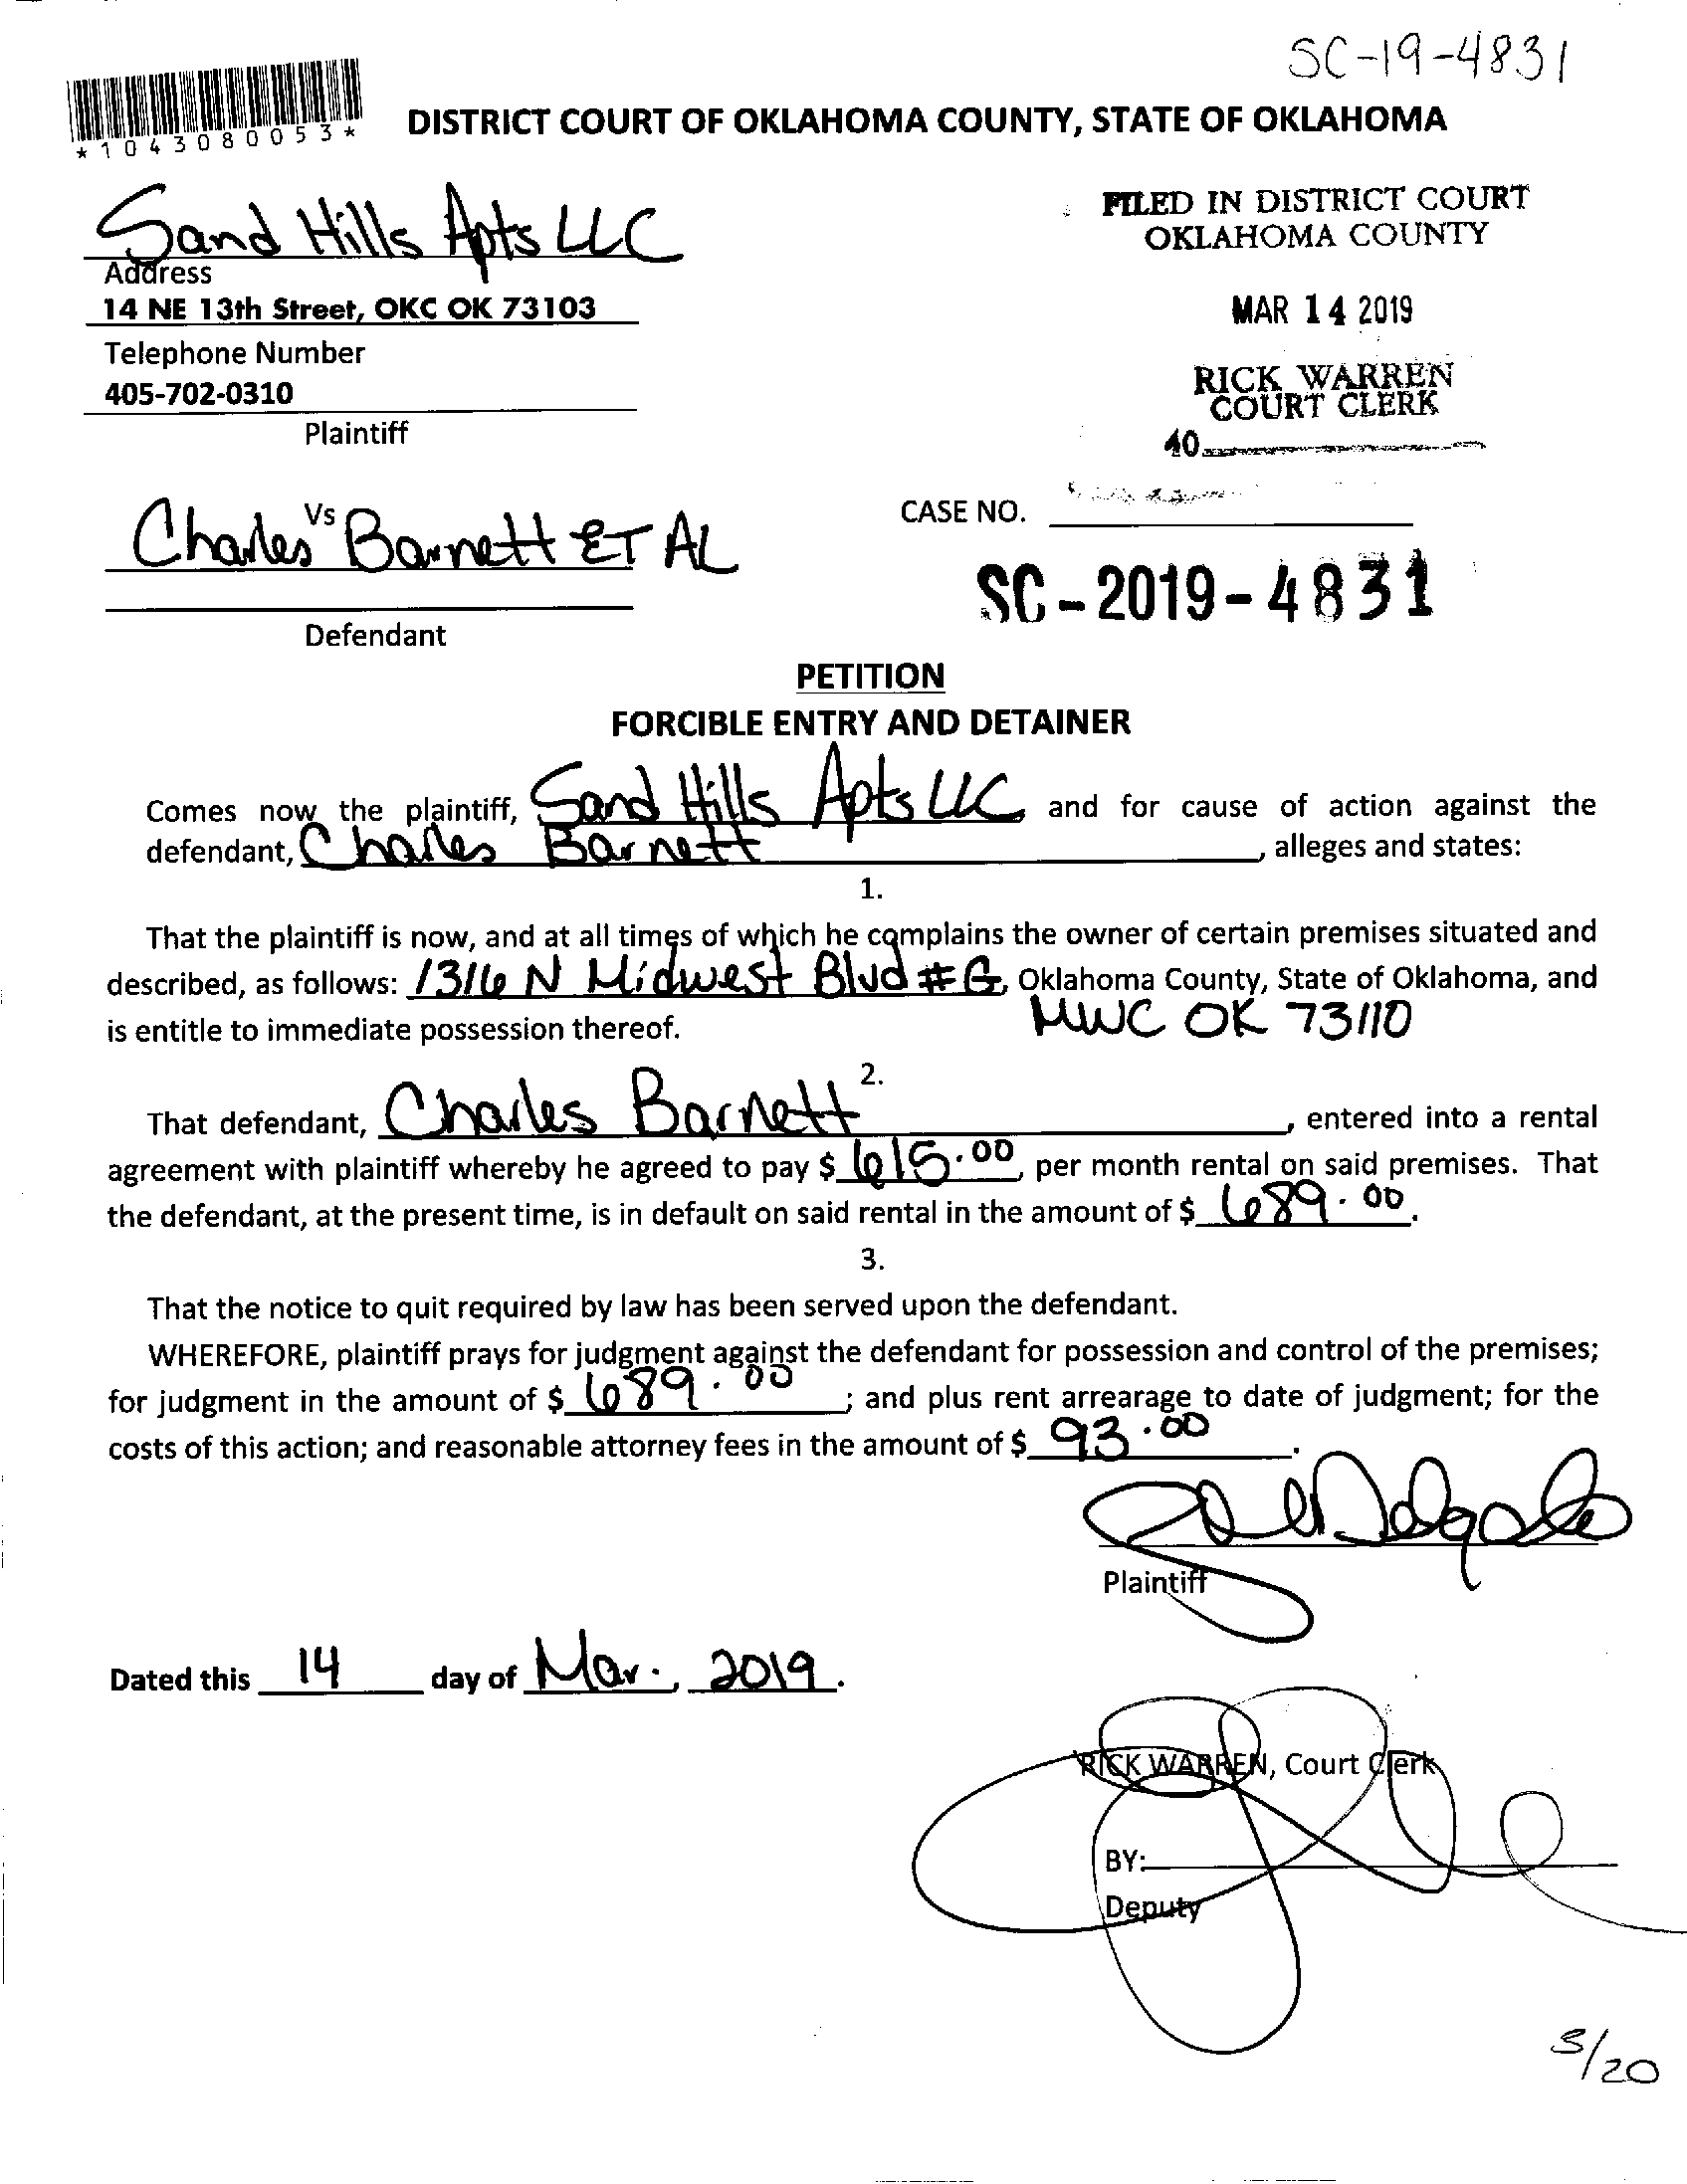 SC-19-4831
*1043080053*
DISTRICT COURT OF OKLAHOMA COUNTY, STATE OF OKLAHOMA
Sand Hills Apts LLC
Address
14 NE 13th Street, OKC OK 73103
Telephone Number
405-702-0310
Plaintiff
FILED IN DISTRICT COURT
OKLAHOMA COUNTY
MAR 14 2019
RICK WARREN
COURT CLERK
40
Vs
Charles Barnett ET AL
Defendant
CASE NO.
SC-2019-4831
PETITION
FORCIBLE ENTRY AND DETAINER
Comes now the plaintiff, Sand Hills Apts LLC and for cause of action against the
defendant, Charles Barnett, alleges and states:
1.
That the plaintiff is now, and at all times of which he complains the owner of certain premises situated and
described, as follows: 1316 N Midwest Blvd #G, Oklahoma County, State of Oklahoma, and
is entitle to immediate possession thereof. MWC OK 73110
2.
That defendant, Charles Barnett, entered into a rental
agreement with plaintiff whereby he agreed to pay $ 615.00, per month rental on said premises. That
the defendant, at the present time, is in default on said rental in the amount of $ 689.00.
3.
That the notice to quit required by law has been served upon the defendant.
WHEREFORE, plaintiff prays for judgment against the defendant for possession and control of the premises;
for judgment in the amount of $ 689.00; and plus rent arrearage to date of judgment; for the
costs of this action; and reasonable attorney fees in the amount of $ 93.00.
Plaintiff
Dated this 14 day of Mar., 2019.
RICK WARREN, Court Clerk
BY:
Deputy
3/20